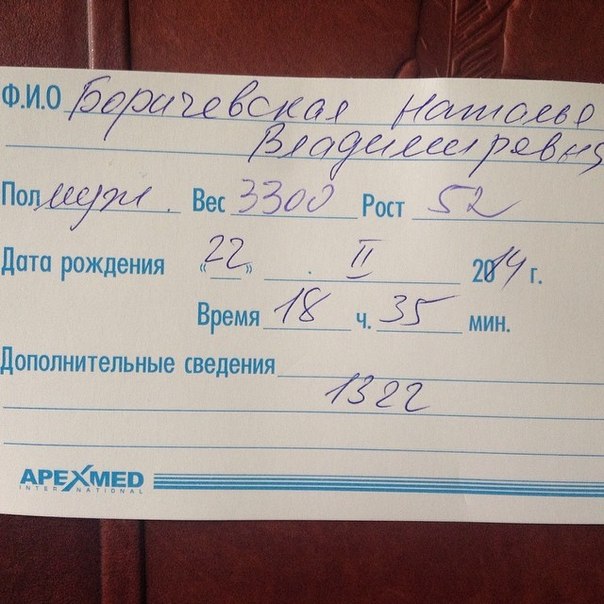 Ф.И.О Борачевская Наталья
Владимировна
Пол муж. Вес 3300 Рост 52
Дата рождения "22" II 2014 г.
Время 18 ч. 35 мин.
Дополнительные сведения
1322
APEXMED
INTERNATIONAL